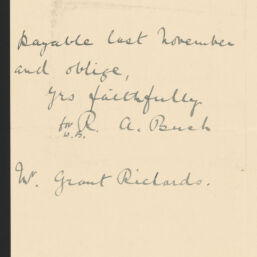 payable last November
and oblige,
Yrs faithfully
for R. A. Buck
W.B.
Mr. Grant Richards.